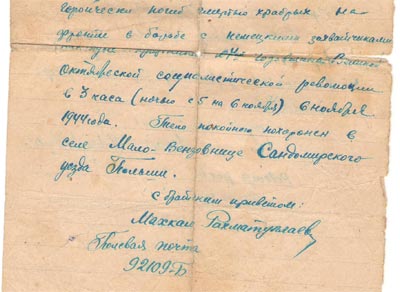 героически погиб смертью храбрых на
фронте в борьбе с немецкими захватчиками
годовщины Великой
Октябрской социалистической революции
в 3 часа (ночью с 5 на 6 ноября) 6 ноября
1944 года. Тело покойного похоронен в
селе Мало-Вензовнице Сандомирского
уезда Польши.
С братским приветом:
Махкам Рахматуллаев
Полевая почта
92109-Б